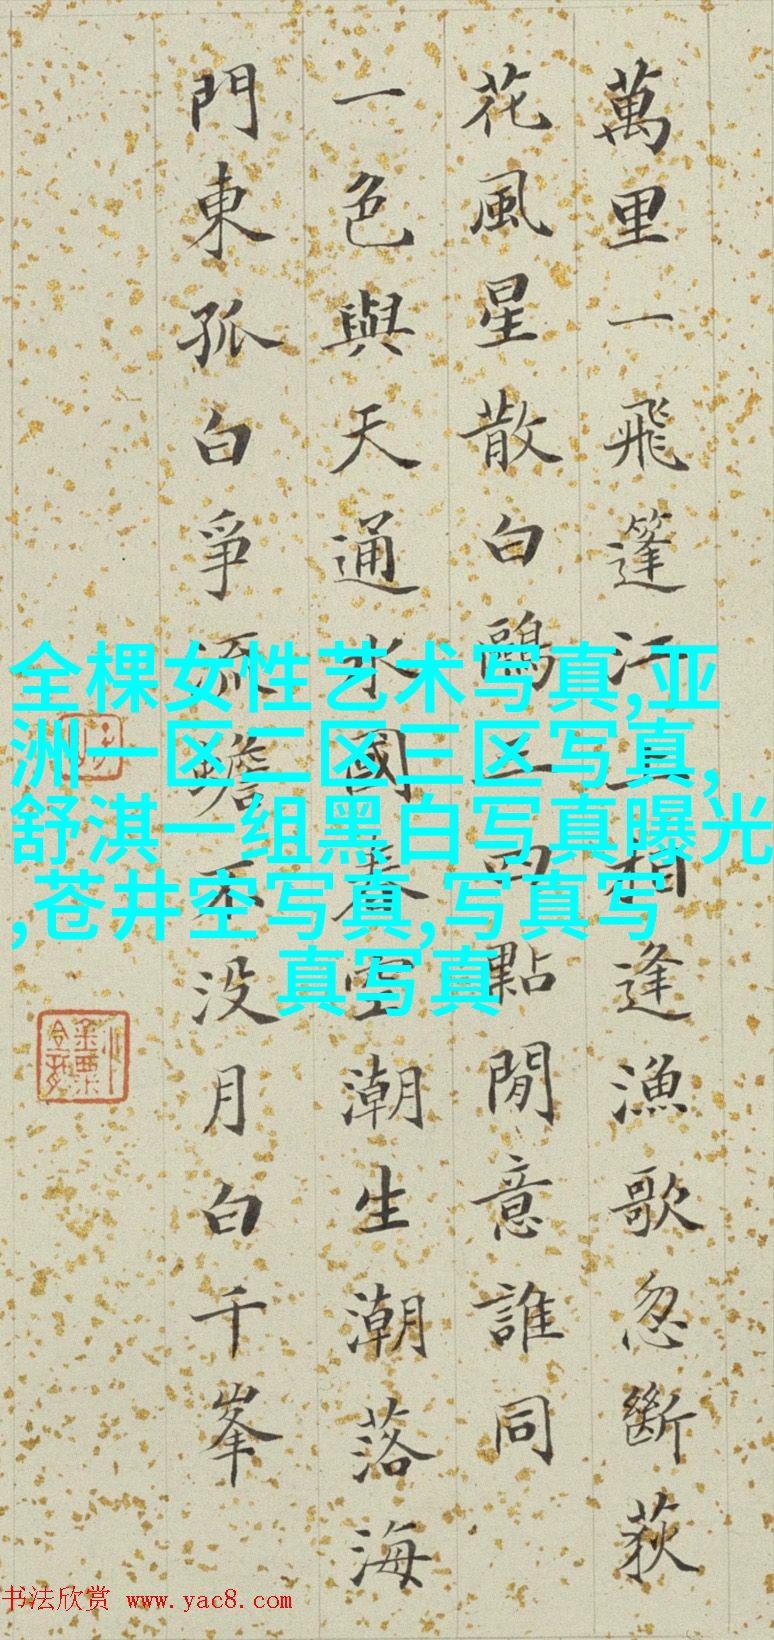 萬里一飛篷江上相逢漁歌忽斷荻
花風星散白鷗三四點閒意誰同
一色與天通水國春空潮生潮落海
門東孤白爭流蟾不没月白千峯
全棵女性艺术写真,亚
洲一区二区三区写真,
舒淇一组黑白写真曝光
,苍井空写真,写真写
真写真
书法欣赏 www.yac8.com